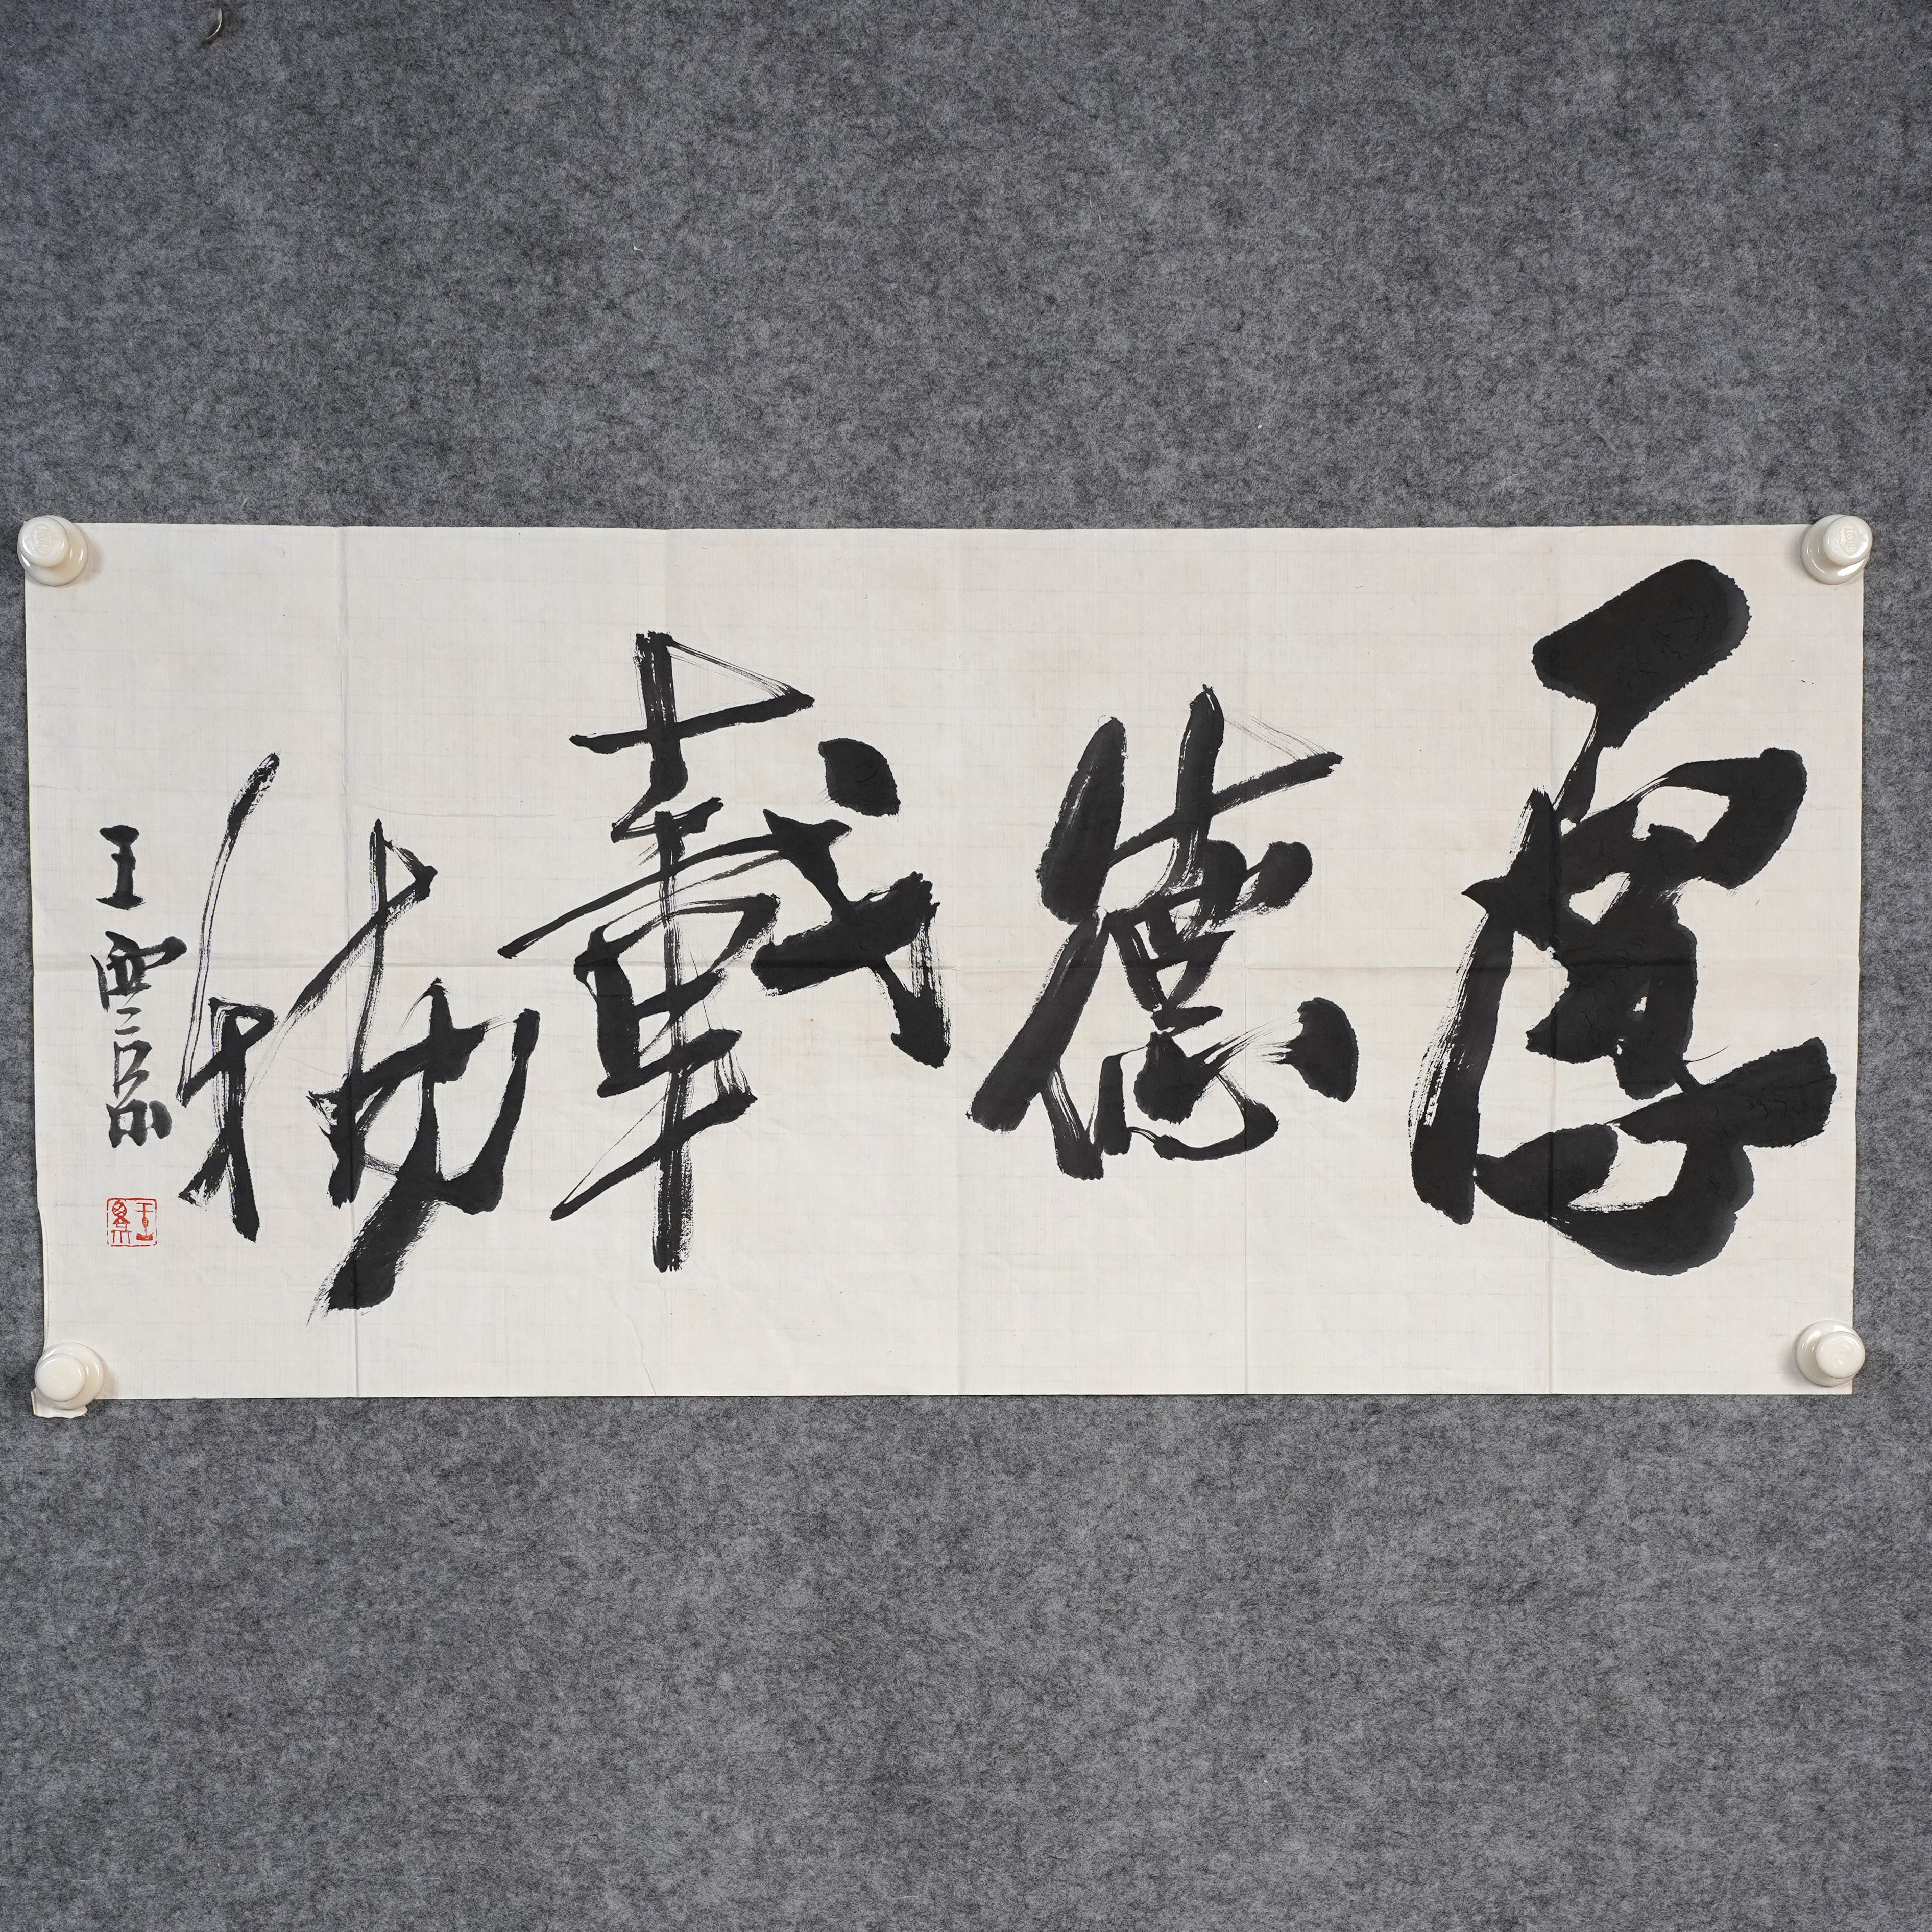 厚德載物
王